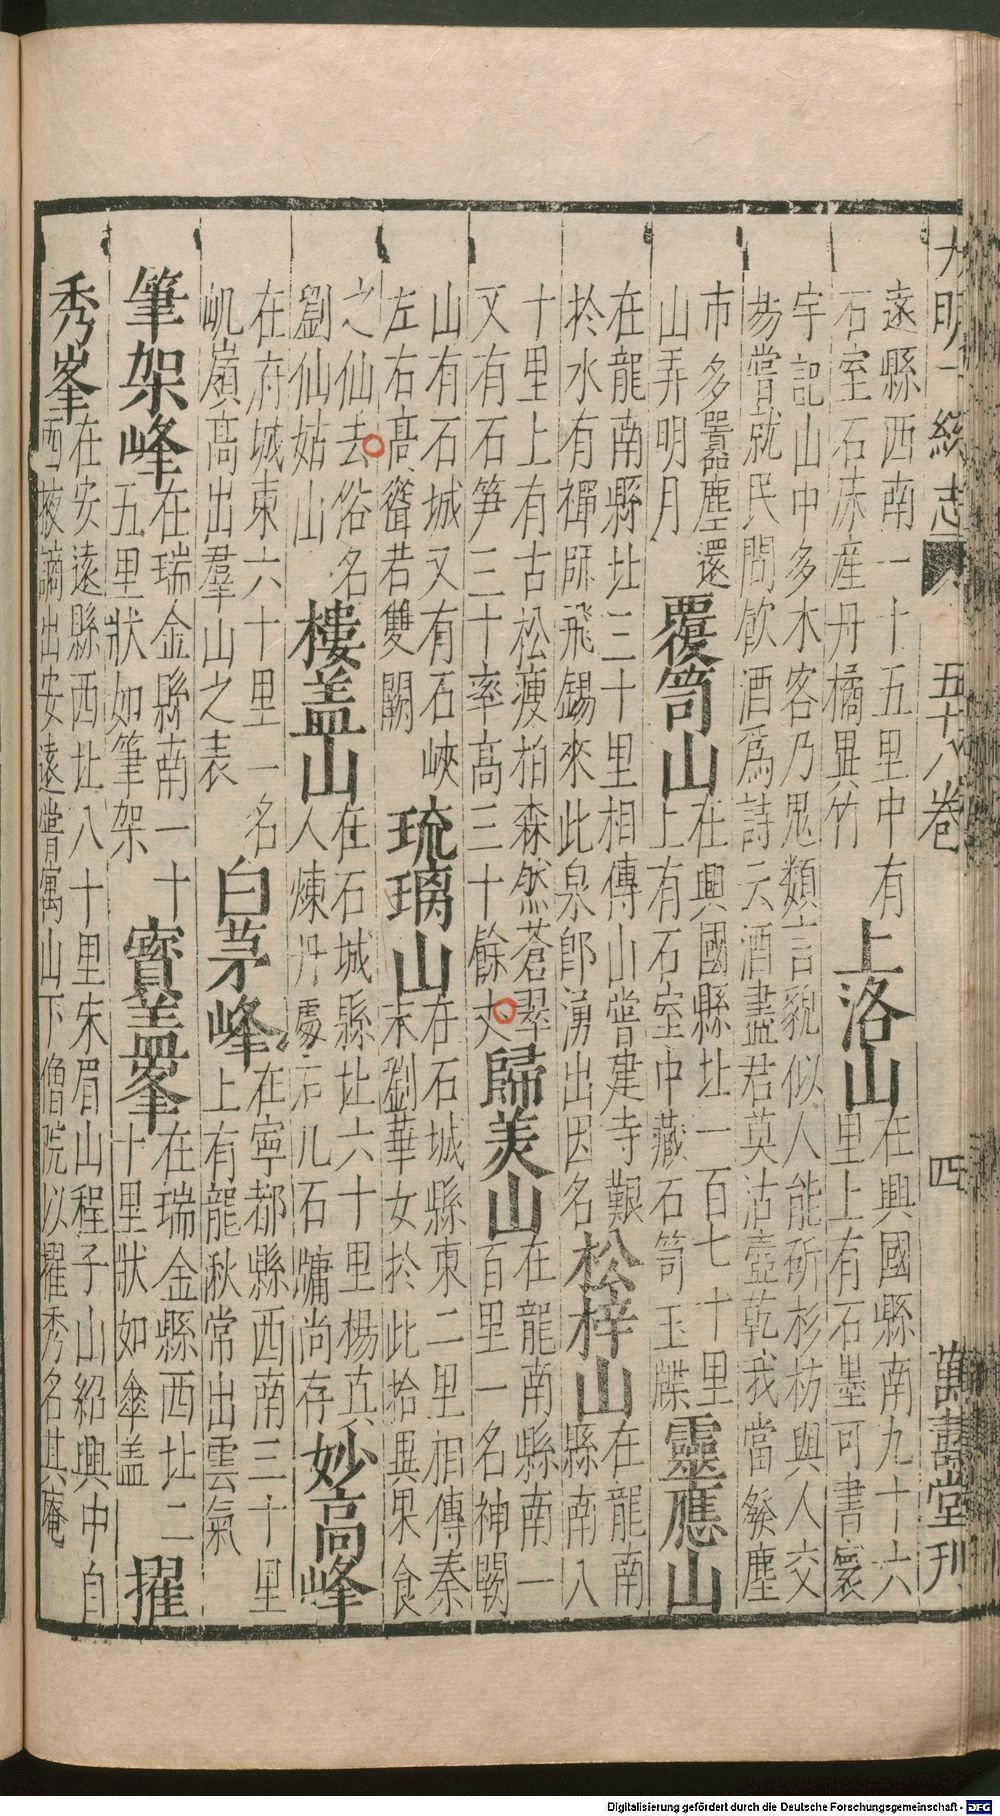 大明一統志 五十八卷 四 萬壽堂刊
遠縣西南一十五里中有
石室石床産丹橘異竹
上洛山
在興國縣南九十六
里上有石墨可書寰
宇記山中多木客乃鬼類言貌似人能斫杉枋與人交
易嘗就民間飲酒爲詩云酒盡君莫沽壺乾我當發塵
市多囂塵還
山弄明月
覆笥山
在興國縣北一百七十里
上有石室中藏石笥玉牒
靈應山
在龍南縣北三十里相傳山嘗建寺艱
於水有禪師飛錫來此泉郎湧出因名
松梓山
在龍南
縣南八
十里上有古松瘦柏森然蒼翠
又有石笋三十率高三十餘丈
歸美山
在龍南縣南一
百里一名神闕
山有石城又有石峽
左右髙聳若雙闕
琉璃山
在石城縣東二里相傳秦
末劉華女於此拾異果食
之仙去俗名
劉仙姑山
樓盖山
在石城縣北六十里楊真
人煉丹處古几石牗尚存
妙高峰
在府城東六十里一名
嶺髙出羣山之表
白茅峰
在寧都縣西南三十里
上有龍湫常出雲氣
筆架峰
在瑞金縣南一十
五里狀如筆架
寶盖峯
在瑞金縣西北二
十里狀如傘盖
擢
秀峯
在安遠縣西北八十里宋眉山程子山紹興中自
西掖謫出安遠嘗寓山下僧院以擢秀名其庵
Digitalisierung gefördert durch die Deutsche Forschungsgemeinschaft - DFG